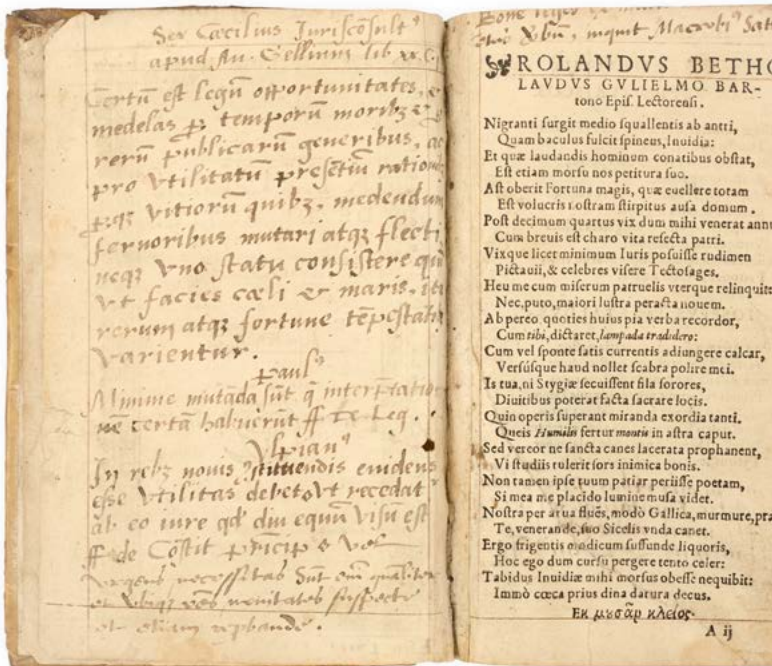 Sex Cæcilius Jurisconsult⁹
apud Au. Gellium lib xx. C. j
Certū est legū opportunitates, &
medelas ꝑ temporū moribꝫ &
rerū publicarū generibus, ac
pro vtilitatū presētiū rationibꝫ
vitiorū quibꝫ, medendum
feruoribus mutari atqꝫ flecti
neqꝫ vno statu consistere quī
vt facies cæli & maris, ita
rerum atqꝫ fortune tēpestatibꝫ
varientur.
Paul⁹
Minime mutāda sūt q̄ interptatio
nē certā habuerūt ff de Leg.
Vlpian⁹
In rebꝫ nouis 9stituendis euidens
esse vtilitas debet, vt recedat
ab eo iure qđ diu equū visū est
ff de Cōstit prīcip
Vrgens necessitas
suspecte
et etiam
inquit Macrobi⁹ Sat
ROLANDVS BETHO
LAVDVS GVLIELMO BAR-
tono Epiſ. Lectorenſi.
Nigranti ſurgit medio ſquallentis ab antri,
Quam baculus fulcit ſpineus, Inuidia:
Et quæ laudandis hominum conatibus obſtat,
Eſt etiam morſu nos petitura ſuo.
Aſt oberit Fortuna magis, quæ euellere totam
Eſt volucris noſtram ſtirpitus auſa domum.
Poſt decimum quartus vix dum mihi venerat annu
Cum breuis eſt charo vita reſecta patri.
Vixque licet minimum Iuris poſuiſſe rudimen
Pictauii, & celebres viſere Tectoſages.
Heu me cum miſerum patruelis vterque relinquite
Nec, puto, maiori luſtra peracta nouem.
Ab pereo quoties huius pia verba recordor,
Cum tibi, dictaret, lampada tradidero:
Cum vel ſponte ſatis currentis adiungere calcar,
Verſúſque haud nollet ſcabra polire mei.
Is tua, ni Stygiæ ſecuiſſent fila ſorores,
Diuitibus poterat facta ſacrare locis.
Quin operis ſuperant miranda exordia tanti.
Queis Humilis fertur montis in aſtra caput.
Sed vereor ne ſancta canes lacerata prophanent,
Vi ſtudiis tulerit ſors inimica bonis.
Non tamen ipſe tuum patiar periiſſe poetam,
Si mea me placido lumine muſa videt.
Noſtra per arua fluēs, modò Gallica, murmure, pra
Te, venerande, ſuo Sicelis vnda canet.
Ergo frigentis modicum ſuffunde liquoris,
Hoc ego dum curſu pergere tento celer:
Tabidus Inuidiæ mihi morſus obeſſe nequibit:
Immò cæca prius dina datura decus.
Εκ μυσᾶρ κλείος.
A ij